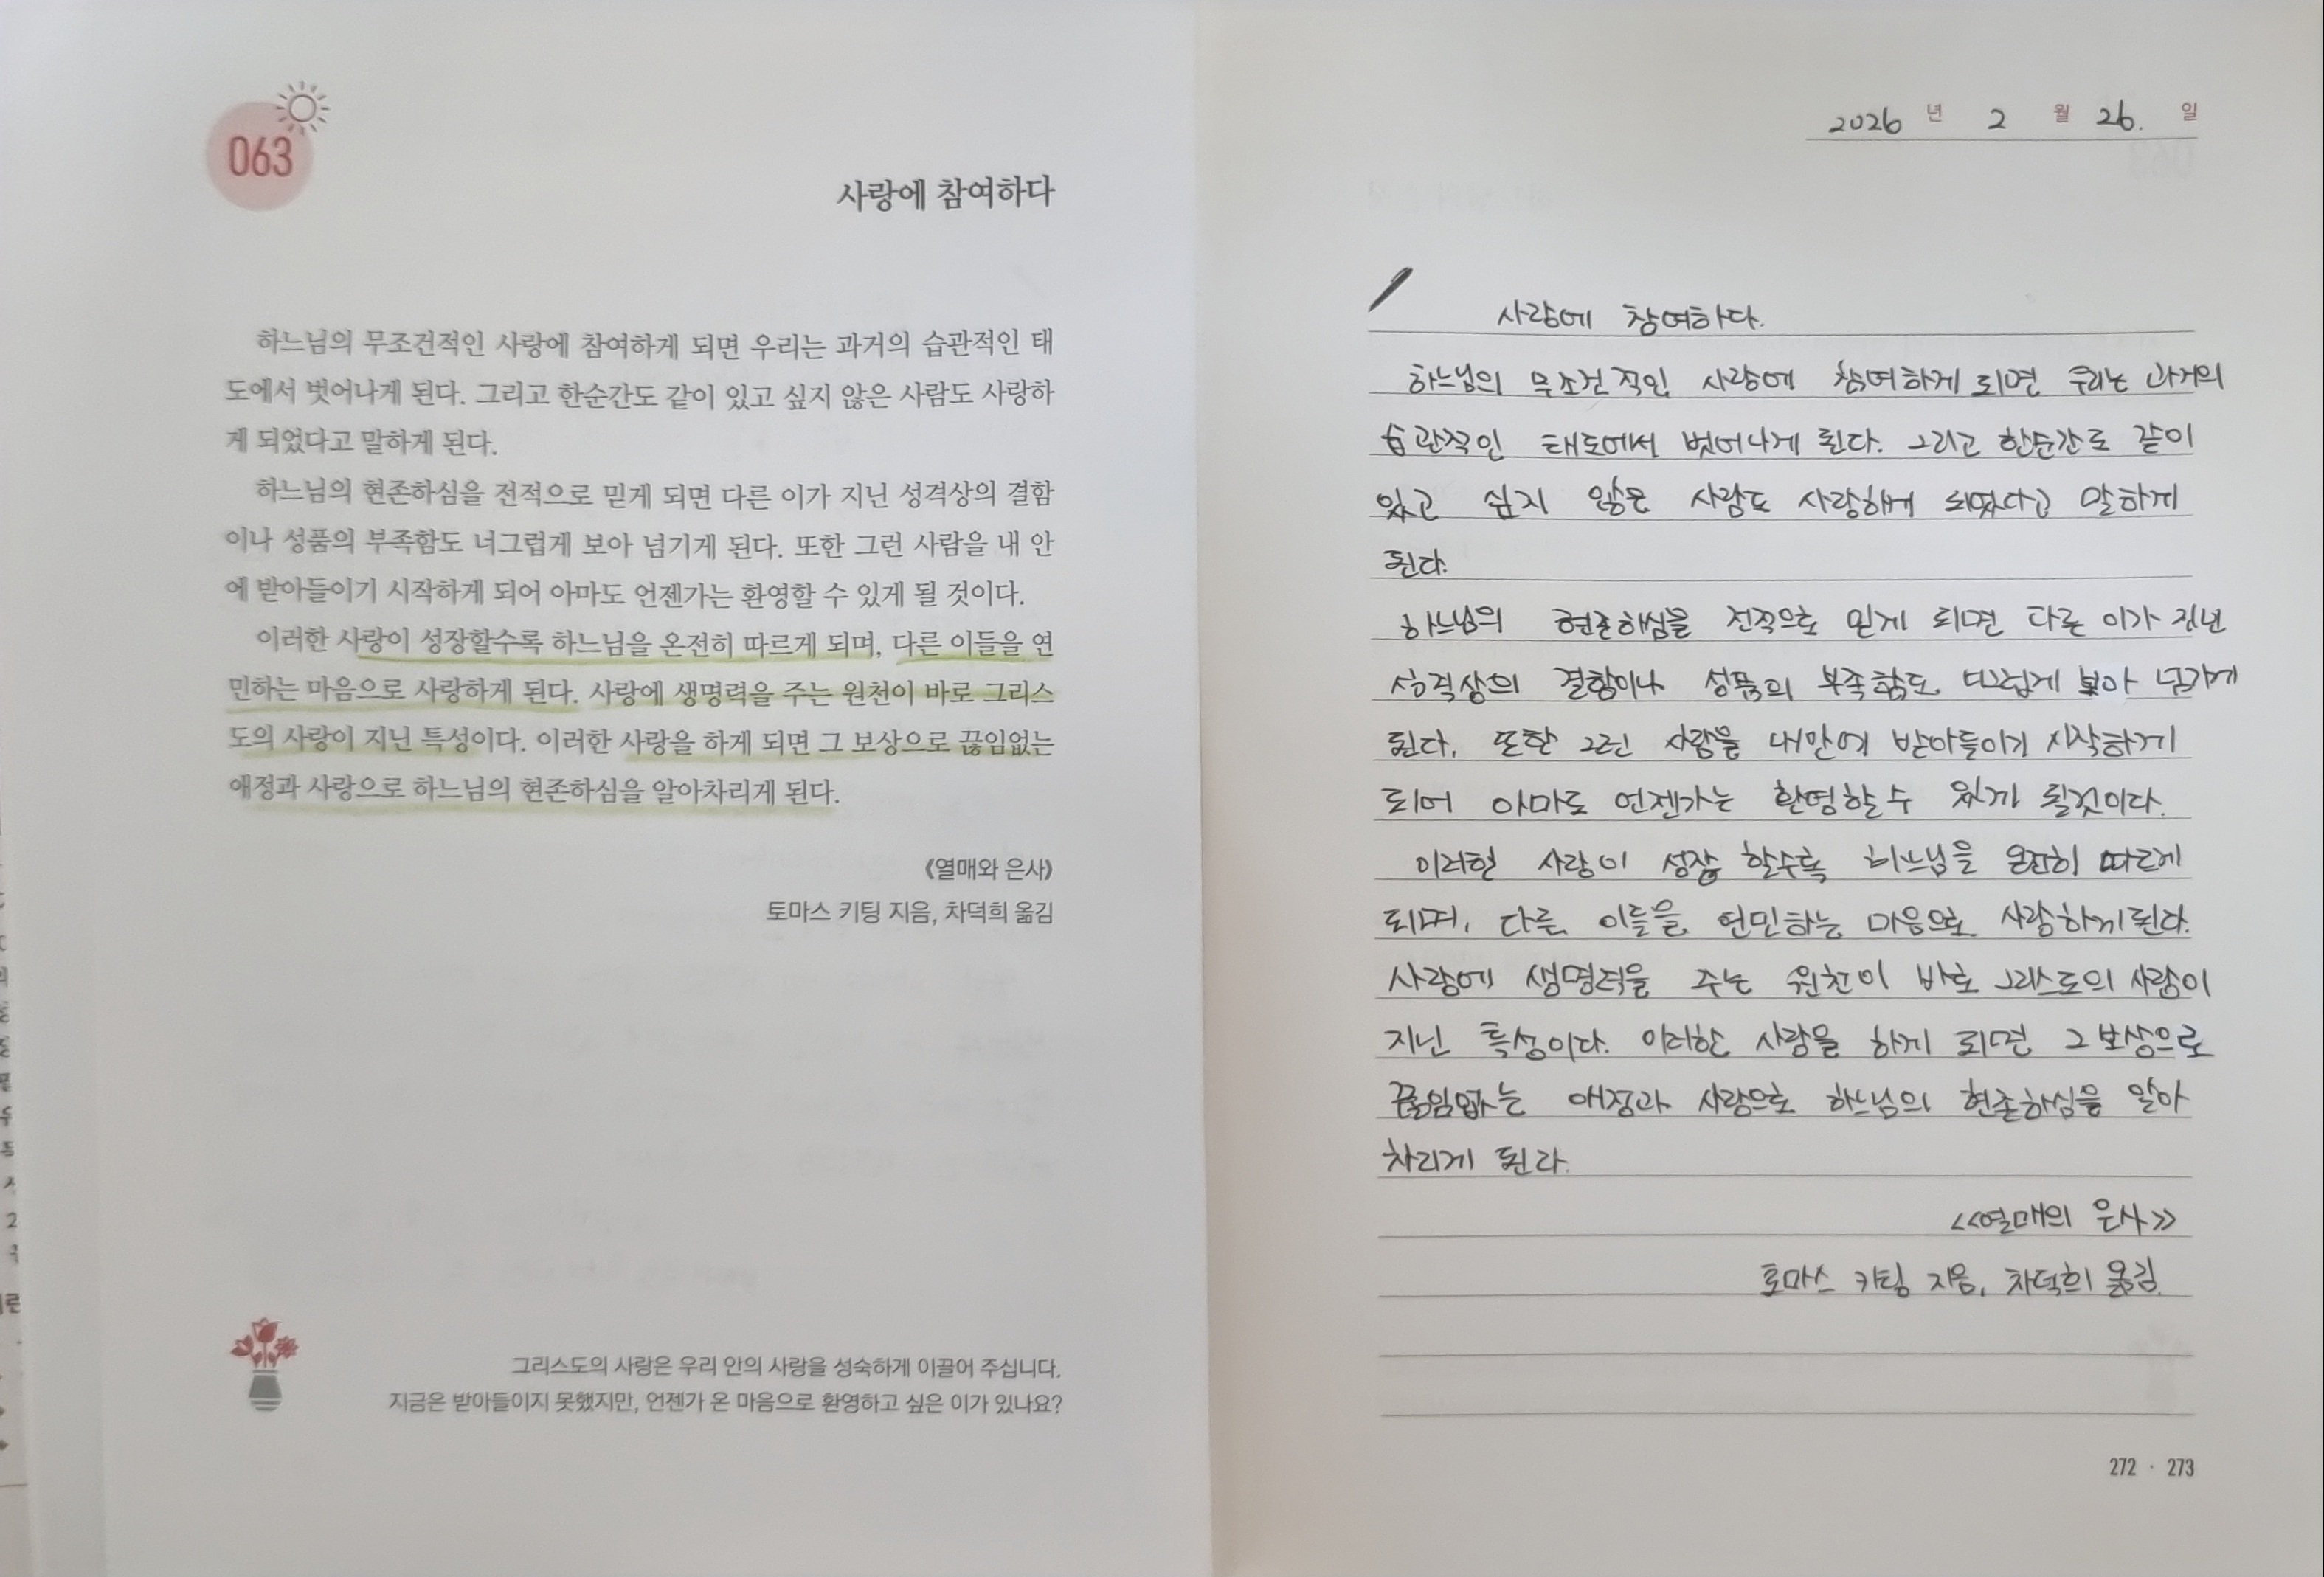 063
사랑에 참여하다
하느님의 무조건적인 사랑에 참여하게 되면 우리는 과거의 습관적인 태
도에서 벗어나게 된다. 그리고 한순간도 같이 있고 싶지 않은 사람도 사랑하
게 되었다고 말하게 된다.
하느님의 현존하심을 전적으로 믿게 되면 다른 이가 지닌 성격상의 결함
이나 성품의 부족함도 너그럽게 보아 넘기게 된다. 또한 그런 사람을 내 안
에 받아들이기 시작하게 되어 아마도 언젠가는 환영할 수 있게 될 것이다.
이러한 사랑이 성장할수록 하느님을 온전히 따르게 되며, 다른 이들을 연
민하는 마음으로 사랑하게 된다. 사랑에 생명력을 주는 원천이 바로 그리스
도의 사랑이 지닌 특성이다. 이러한 사랑을 하게 되면 그 보상으로 끊임없는
애정과 사랑으로 하느님의 현존하심을 알아차리게 된다.
《열매와 은사》
토마스 키팅 지음, 차덕희 옮김
그리스도의 사랑은 우리 안의 사랑을 성숙하게 이끌어 주십니다.
지금은 받아들이지 못했지만, 언젠가 온 마음으로 환영하고 싶은 이가 있나요?
2026 년 2 월 26. 일
사랑에 참여하다.
하느님의 무조건적인 사랑에 참여하게 되면 우리는 과거의
습관적인 태도에서 벗어나게 된다. 그리고 한순간도 같이
있고 싶지 않은 사람도 사랑하게 되었다고 말하게
된다.
하느님의 현존하심을 전적으로 믿게 되면 다른 이가 지닌
성격상의 결함이나 성품의 부족함도 보아 넘기게
된다. 또한 그런 사람을 내안에 받아들이기 시작하게
되어 아마도 언젠가는 환영할 수 있게 될것이다.
이러한 사랑이 성장 할수록 하느님을 온전히 따르게
되며, 다른 이들을 연민하는 마음으로 사랑하게 된다.
사랑에 생명력을 주는 원천이 바로 그리스도의 사랑이
지닌 특성이다. 이러한 사랑을 하게 되면 그 보상으로
끊임없는 애정과 사랑으로 하느님의 현존하심을 알아
차리게 된다.
<<열매의 은사>>
토마스 키팅 지음, 차덕희 옮김.
272 · 273